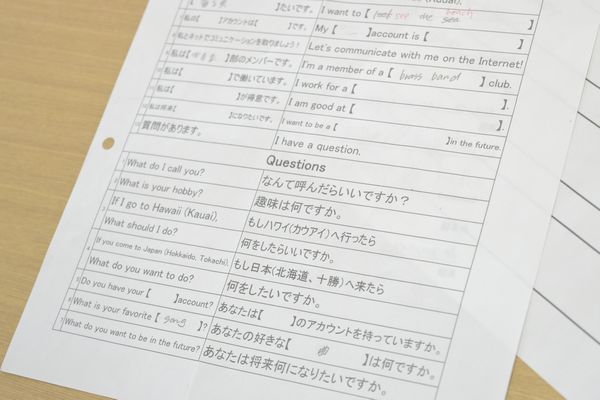 】たいです。 I want to【 look see the sea beach
私は【 】アカウントは【 】です。 My【 】account is【 】
私とネットでコミュニケーションを取りましょう! Let's communicate with me on the Internet!
私は【 】部のメンバーです。 I'm a member of a【 brass band 】club.
私は【 】で働いています。 I work for a【 】.
私は【 】が得意です。 I am good at【 】.
私は将来【 】になりたいです。 I want to be a【 】in the future.
質問があります。 I have a question.
Questions
What do I call you? なんて呼んだらいいですか?
What is your hobby? 趣味は何ですか。
If I go to Hawaii (Kauai), もしハワイ(カウアイ)へ行ったら
What should I do? 何をしたらいいですか。
If you come to Japan (Hokkaido, Tokachi), もし日本(北海道、十勝)へ来たら
What do you want to do? 何をしたいですか。
Do you have your【 】account? あなたは【 】のアカウントを持っていますか。
What is your favorite【 song 】? あなたの好きな【 曲 】は何ですか。
What do you want to be in the future? あなたは将来何になりたいですか。